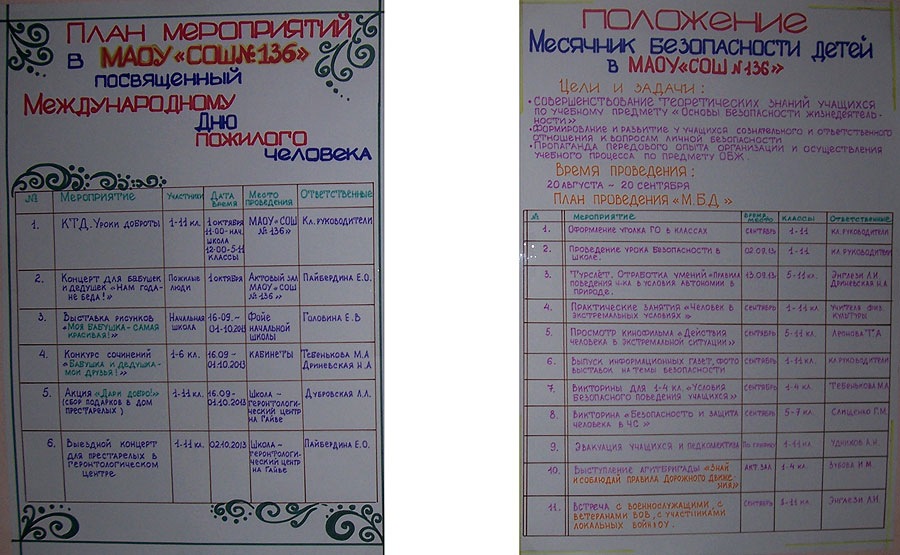 План мероприятий
в МАОУ «СОШ № 136»
посвященный
Международному
Дню
пожилого
человека
№ Мероприятие Участники Дата время Место проведения Ответственные
1. КТД. Уроки доброты 1-11 кл. 1 октября 11:00-нач. школа 12:00-5-11 классы МАОУ «СОШ № 136» Кл. руководители
2. Концерт для бабушек и дедушек «Нам года- не беда!» Пожилые люди 1 октября Актовый зал МАОУ «СОШ № 136» Пайбердина Е.О.
3. Выставка рисунков «Моя бабушка - самая красивая!» Начальная школа 16.09. - 01.10.2013 Фойе начальной школы Головина Е.В
4. Конкурс сочинений «Бабушка и дедушка- мои друзья!» 1-6 кл. 16.09 - 01.10.2013 кабинеты Тебенькова М.А Дриневская Н.А
5. Акция «Дари добро!» (сбор подарков в дом престарелых) 1-11 кл. 16.09 - 01.10.2013 Школа - геронтологический центр на Гайве Дубровская Л.Л.
6. Выездной концерт для престарелых в геронтологическом центре 1-11 кл. 02.10.2013 Школа - геронтологический центр на Гайве Пайбердина Е.О.
Положение
Месячник безопасности детей
в МАОУ «СОШ № 136»
Цели и задачи:
• Совершенствование теоретических знаний учащихся
по учебному предмету «Основы безопасности жизнедеятель-
ности»
• Формирование и развитие у учащихся сознательного и ответственного
отношения к вопросам личной безопасности
• Пропаганда передового опыта организации и осуществления
учебного процесса по предмету ОБЖ.
Время проведения:
20 августа - 20 сентября
План проведения «М.Б.Д.»
№ Мероприятие Время, место Классы Ответственные
1. Оформление уголка ГО в классах сентябрь 1-11 кл. руководители
2. Проведение урока безопасности в школе. 02.09.13г 1-11 кл. руководители
3. Турслёт. Отработка умений «Правила поведения ч-ка в условия автономии в природе. 13.09.13г 5-11 кл. Энглези Л.И. Дриневская Н.А
4. Практические занятия «Человек в экстремальных условиях» сентябрь 1-11 кл. Учителя физ. культуры
5. Просмотр кинофильма «Действия человека в экстремальной ситуации» сентябрь 5-11 кл. Леонова Т.А
6. Выпуск информационных газет, фото выставок на темы безопасности сентябрь 1-11 кл. кл руководители
7. Викторины для 1-4 кл. «Условия безопасного поведения учащихся» сентябрь 1-4 кл. Тебенькова М.А.
8. Викторина «Безопасность и защита человека в ЧС» сентябрь 5-7 кл. Г.М.
9. Эвакуация учащихся и педколлектива По графику 1-11 кл. Удников А.Н.
10. Выступление агитбригады «Знай и соблюдай правила дорожного движения» акт. зал 1-4 кл. Зубова И.М.
11. Встреча с военнослужащими, с ветеранами ВОВ, с участниками локальных войн сентябрь 1-11 кл. Энглези Л.И.